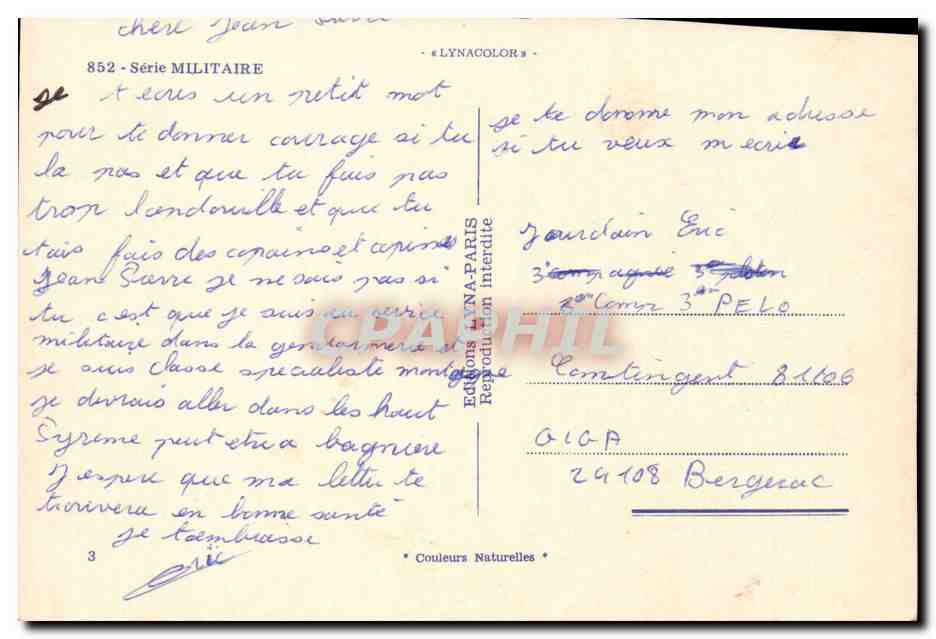 chere Jean Pierre
- « LYNACOLOR » -
852 - Série MILITAIRE
je t ecris un petit mot
pour te donner courage si tu
la pas et que tu fais pas
trop l'andouille et que tu
tais fais des copains et copines
Jean Pierre je ne sais pas si
tu c est que je suis au service
militaire dans la gendarmerie et
je suis classe specialiste montagne
je devrais aller dans les haut
Pyrene peut etre a bagniere
J espere que ma lettre te
trouvera en bonne santé
je t'embrasse
Eric
3
Editions LYNA-PARIS
Reproduction interdite
je te donne mon adresse
si tu veux m ecrire
Jourdain Eric
3° compagnie 3em peloton
2em Comp 3em PELO
Contingent 81/06
GIGA
24108 Bergerac
* Couleurs Naturelles *
CPAPHIL